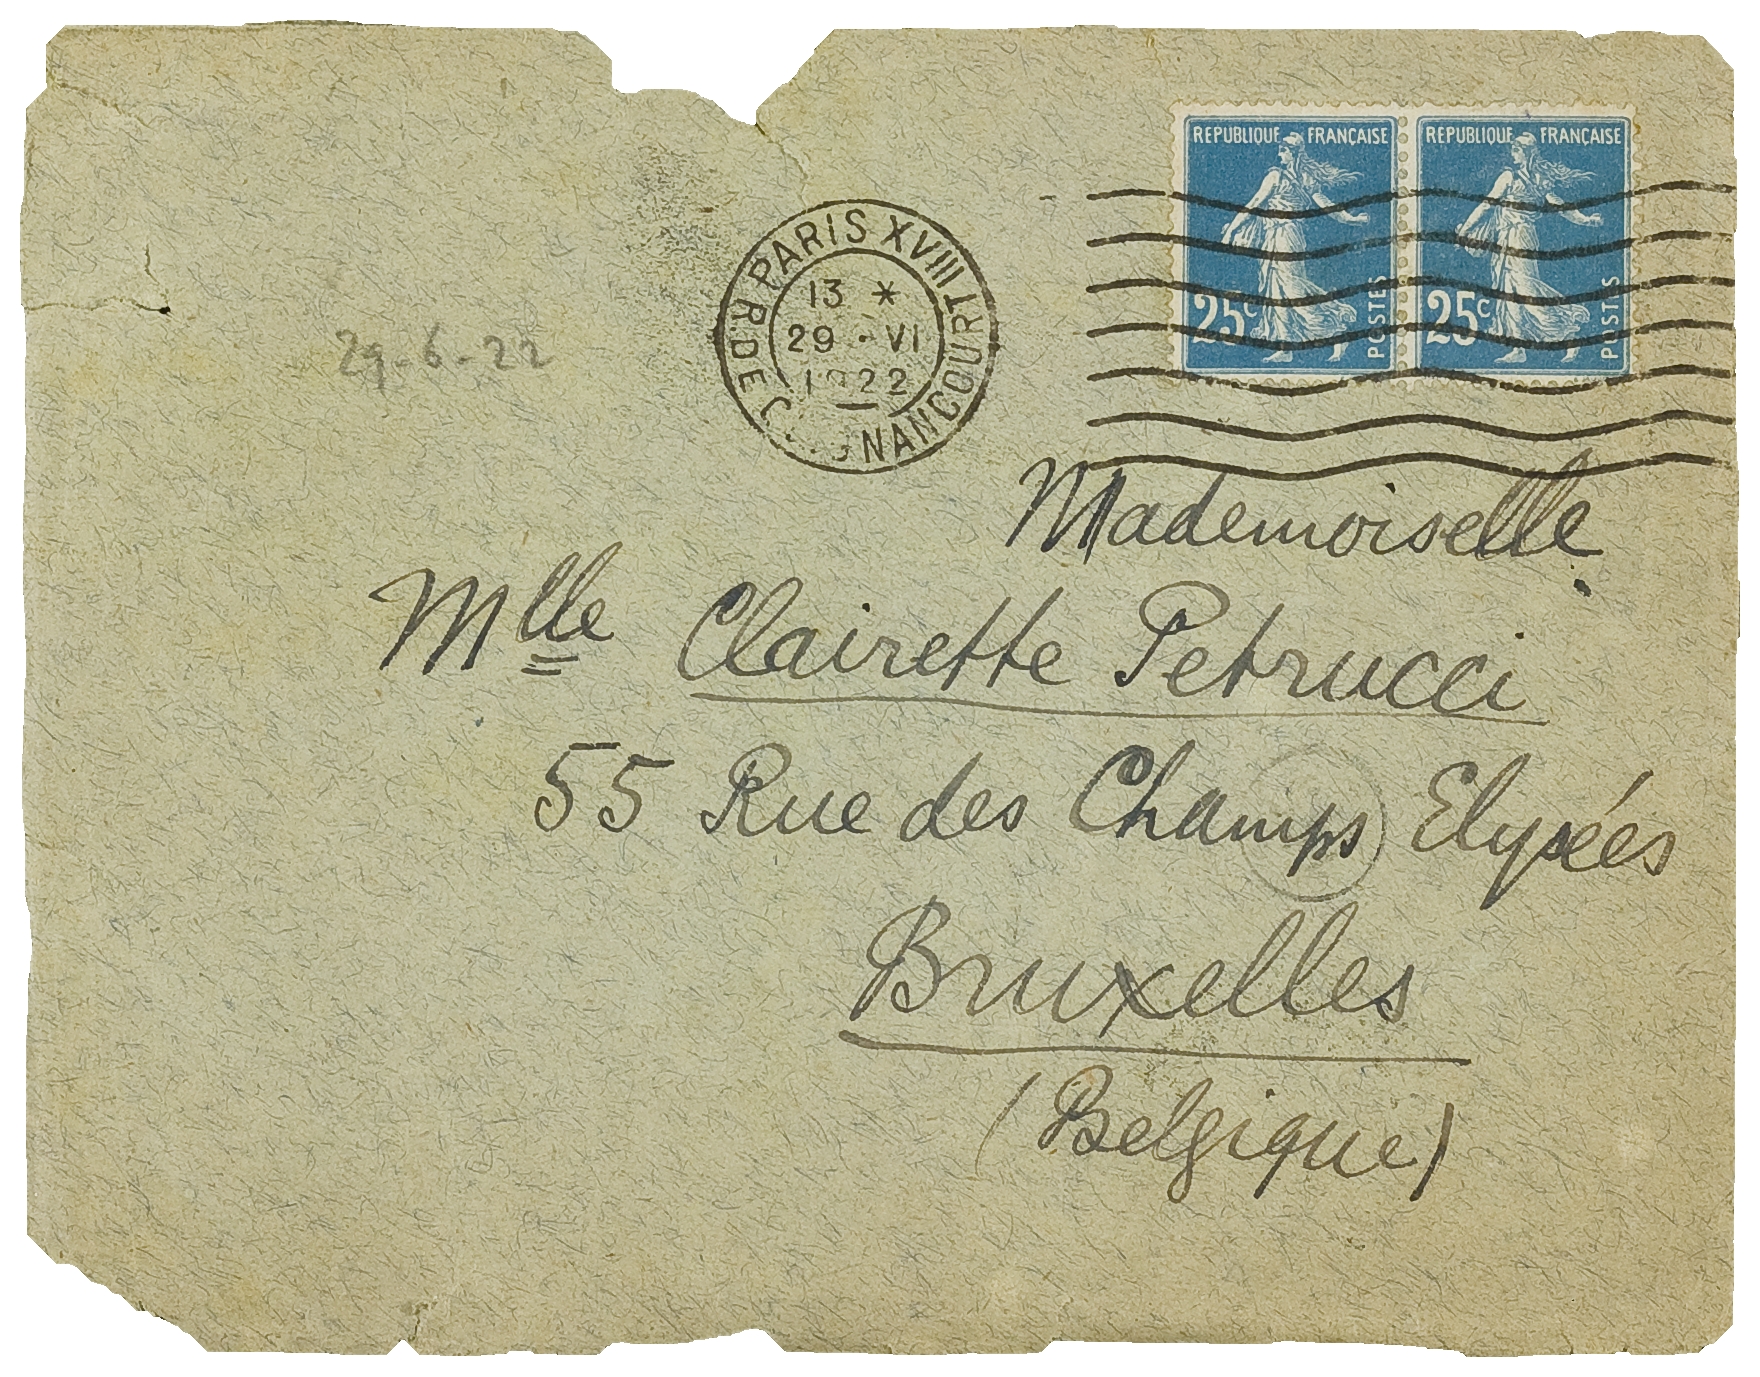 REPUBLIQUE FRANÇAISE
25c
POSTES
REPUBLIQUE FRANÇAISE
25c
POSTES
PARIS XVIII
R. DE J NANCOURT
13 *
29 - VI
1922
29-6-22
Mademoiselle
Mlle Clairette Petrucci
55 Rue des Champs Elysées
Bruxelles
(Belgique)